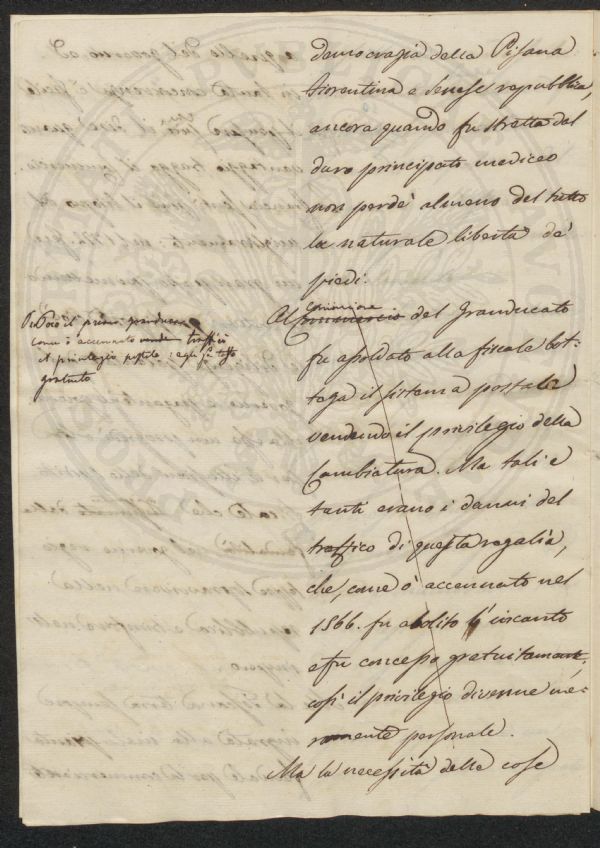 democrazia della Pisana
fiorentina e Senese repubblica,
ancora quando fu stretta dal
duro principato mediceo
non perdè almeno del tutto
la naturale libertà de'
piedi.
Al Commercio del Granducato
fu assoldato alla fiscale bot-
tega il sistema postale
vendendo il privilegio della
Cambiatura. Ma tali e
tanti erano i danni del
traffico di questa regalìa,
che, come ò accennato nel
1566. fu abolito l'incanto
e fu concesso gratuitamente,
così il privilegio divenne me-
ramente personale.
Ma la necessità delle cose
il primo granduca
come ò accennato traffici
il privilegio postale; egli fu
gratuito